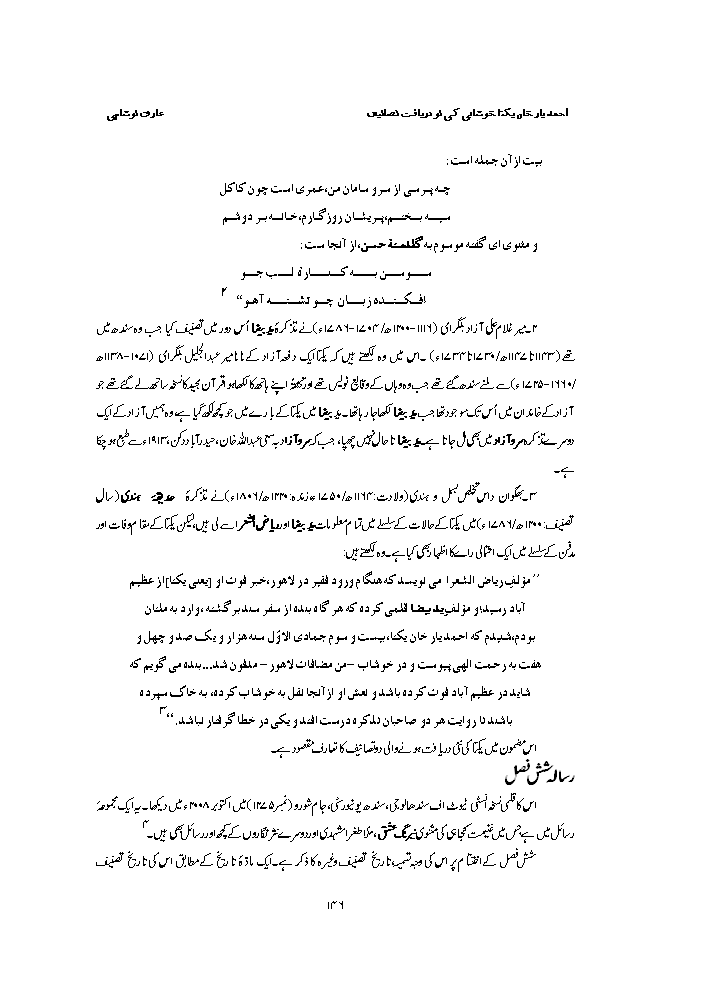 احمد یار خان یکتا خوشابی کی نو دریافت تصانیف عارف نوشاہی
بیت از آن جمله است:
چه پرسی از سر و سامان من، عمری است چون کاکل
سیه بختم، پریشان روزگارم، خانه بر دوشم
و مثنوی ای گفته موسوم به گلدستۂ حسن، از آنجا ست:
سوسن به کنارۂ لب جو
افکنده زبان چو تشنه آهو“ ۲
۲۔ میر غلام علی آزاد بلگرامی (۱۱۱۶-۱۲۰۰ھ/۱۷۰۴-۱۷۸۶ء) نے تذکرۂ ید بیضا اُس دور میں تصنیف کیا جب وہ سندھ میں
تھے (۱۱۴۳ تا ۱۱۴۷ھ/۱۷۳۰ تا ۱۷۳۴ء)۔ اس میں وہ لکھتے ہیں کہ یکتا ایک دفعہ آزاد کے نانا میر عبدالجلیل بلگرامی (۱۰۷۱-۱۱۳۸ھ
/۱۶۶۰-۱۷۲۵ء) سے ملنے سندھ گئے تھے جب وہ وہاں کے وقائع نویس تھے اور تحفۃً اپنے ہاتھ کا لکھا ہوا قرآن مجید کا نسخہ ساتھ لے گئے تھے جو
آزاد کے خاندان میں اُس تک موجود تھا جب ید بیضا لکھا جا رہا تھا۔ ید بیضا میں یکتا کے بارے میں جو کچھ لکھ گیا ہے وہ ہمیں آزاد کے ایک
دوسرے تذکرہ سرو آزاد میں بھی مل جاتا ہے۔ ید بیضا تا حال نہیں چھپا، جب کہ سرو آزاد بہ سعی عبداللہ خان، حیدرآباد دکن، ۱۹۱۳ء سے طبع ہو چکا
ہے۔
۳۔ بھگوان داس متخلص بسمل و ہندی (ولادت: ۱۱۶۴ھ/۱۷۵۰ء؛ زندہ: ۱۲۲۰ھ/۱۸۰۶ء) نے تذکرۂ حدیقۂ ہندی (سال
تصنیف: ۱۲۰۰ھ/۱۷۸۶ء) میں یکتا کے حالات کے سلسلے میں تمام معلومات ید بیضا اور ریاض الشعرا سے لی ہیں، لیکن یکتا کے مقام وفات اور
مدفن کے سلسلے میں ایک احتمالی راے کا اظہار بھی کیا ہے۔ وہ لکھتے ہیں:
”مؤلفِ ریاض الشعرا می نویسد که هنگام ورود فقیر در لاهور، خبر فوت او [یعنی یکتا] از عظیم
آباد رسید؛ و مؤلفِ ید بیضا قلمی کرده که هر گاه بنده از سفر سند برگشته، وارد به ملتان
بودم، شنیدم که احمد یار خان یکتا، بیست و سوم جمادی الاوّل سنه هزار و یک صد و چهل و
هفت به رحمت الهی پیوست و در خوشاب –من مضافات لاهور– مدفون شد... بنده می گویم که
شاید در عظیم آباد فوت کرده باشد و نعش او از آنجا نقل به خوشاب کرده، به خاک سپرده
باشند تا روایت هر دو صاحبان تذکره درست افتد و یکی در خطا گرفتار نباشد.“ ۳
اس مضمون میں یکتا کی نئی دریافت ہونے والی دو تصانیف کا تعارف مقصود ہے۔
رسالہ شش فصل
اس کا قلمی نسخہ انسٹی ٹیوٹ اف سندھالوجی، سندھ یونیورسٹی، جام شورو (نمبر ۱۲۷۵) میں اکتوبر ۲۰۰۸ء میں دیکھا۔ یہ ایک مجموعۂ
رسائل میں ہے جس میں غنیمت کنجاہی کی مثنوی نیرنگ عشق، ملا طغرا مشہدی اور دوسرے نثر نگاروں کے کچھ اور رسائل بھی ہیں۔ ۴
شش فصل کے اختتام پر اس کی وجہ تسمیہ، تاریخ تصنیف وغیرہ کا ذکر ہے۔ ایک مادۂ تاریخ کے مطابق اس کی تاریخ تصنیف
۱۴۶